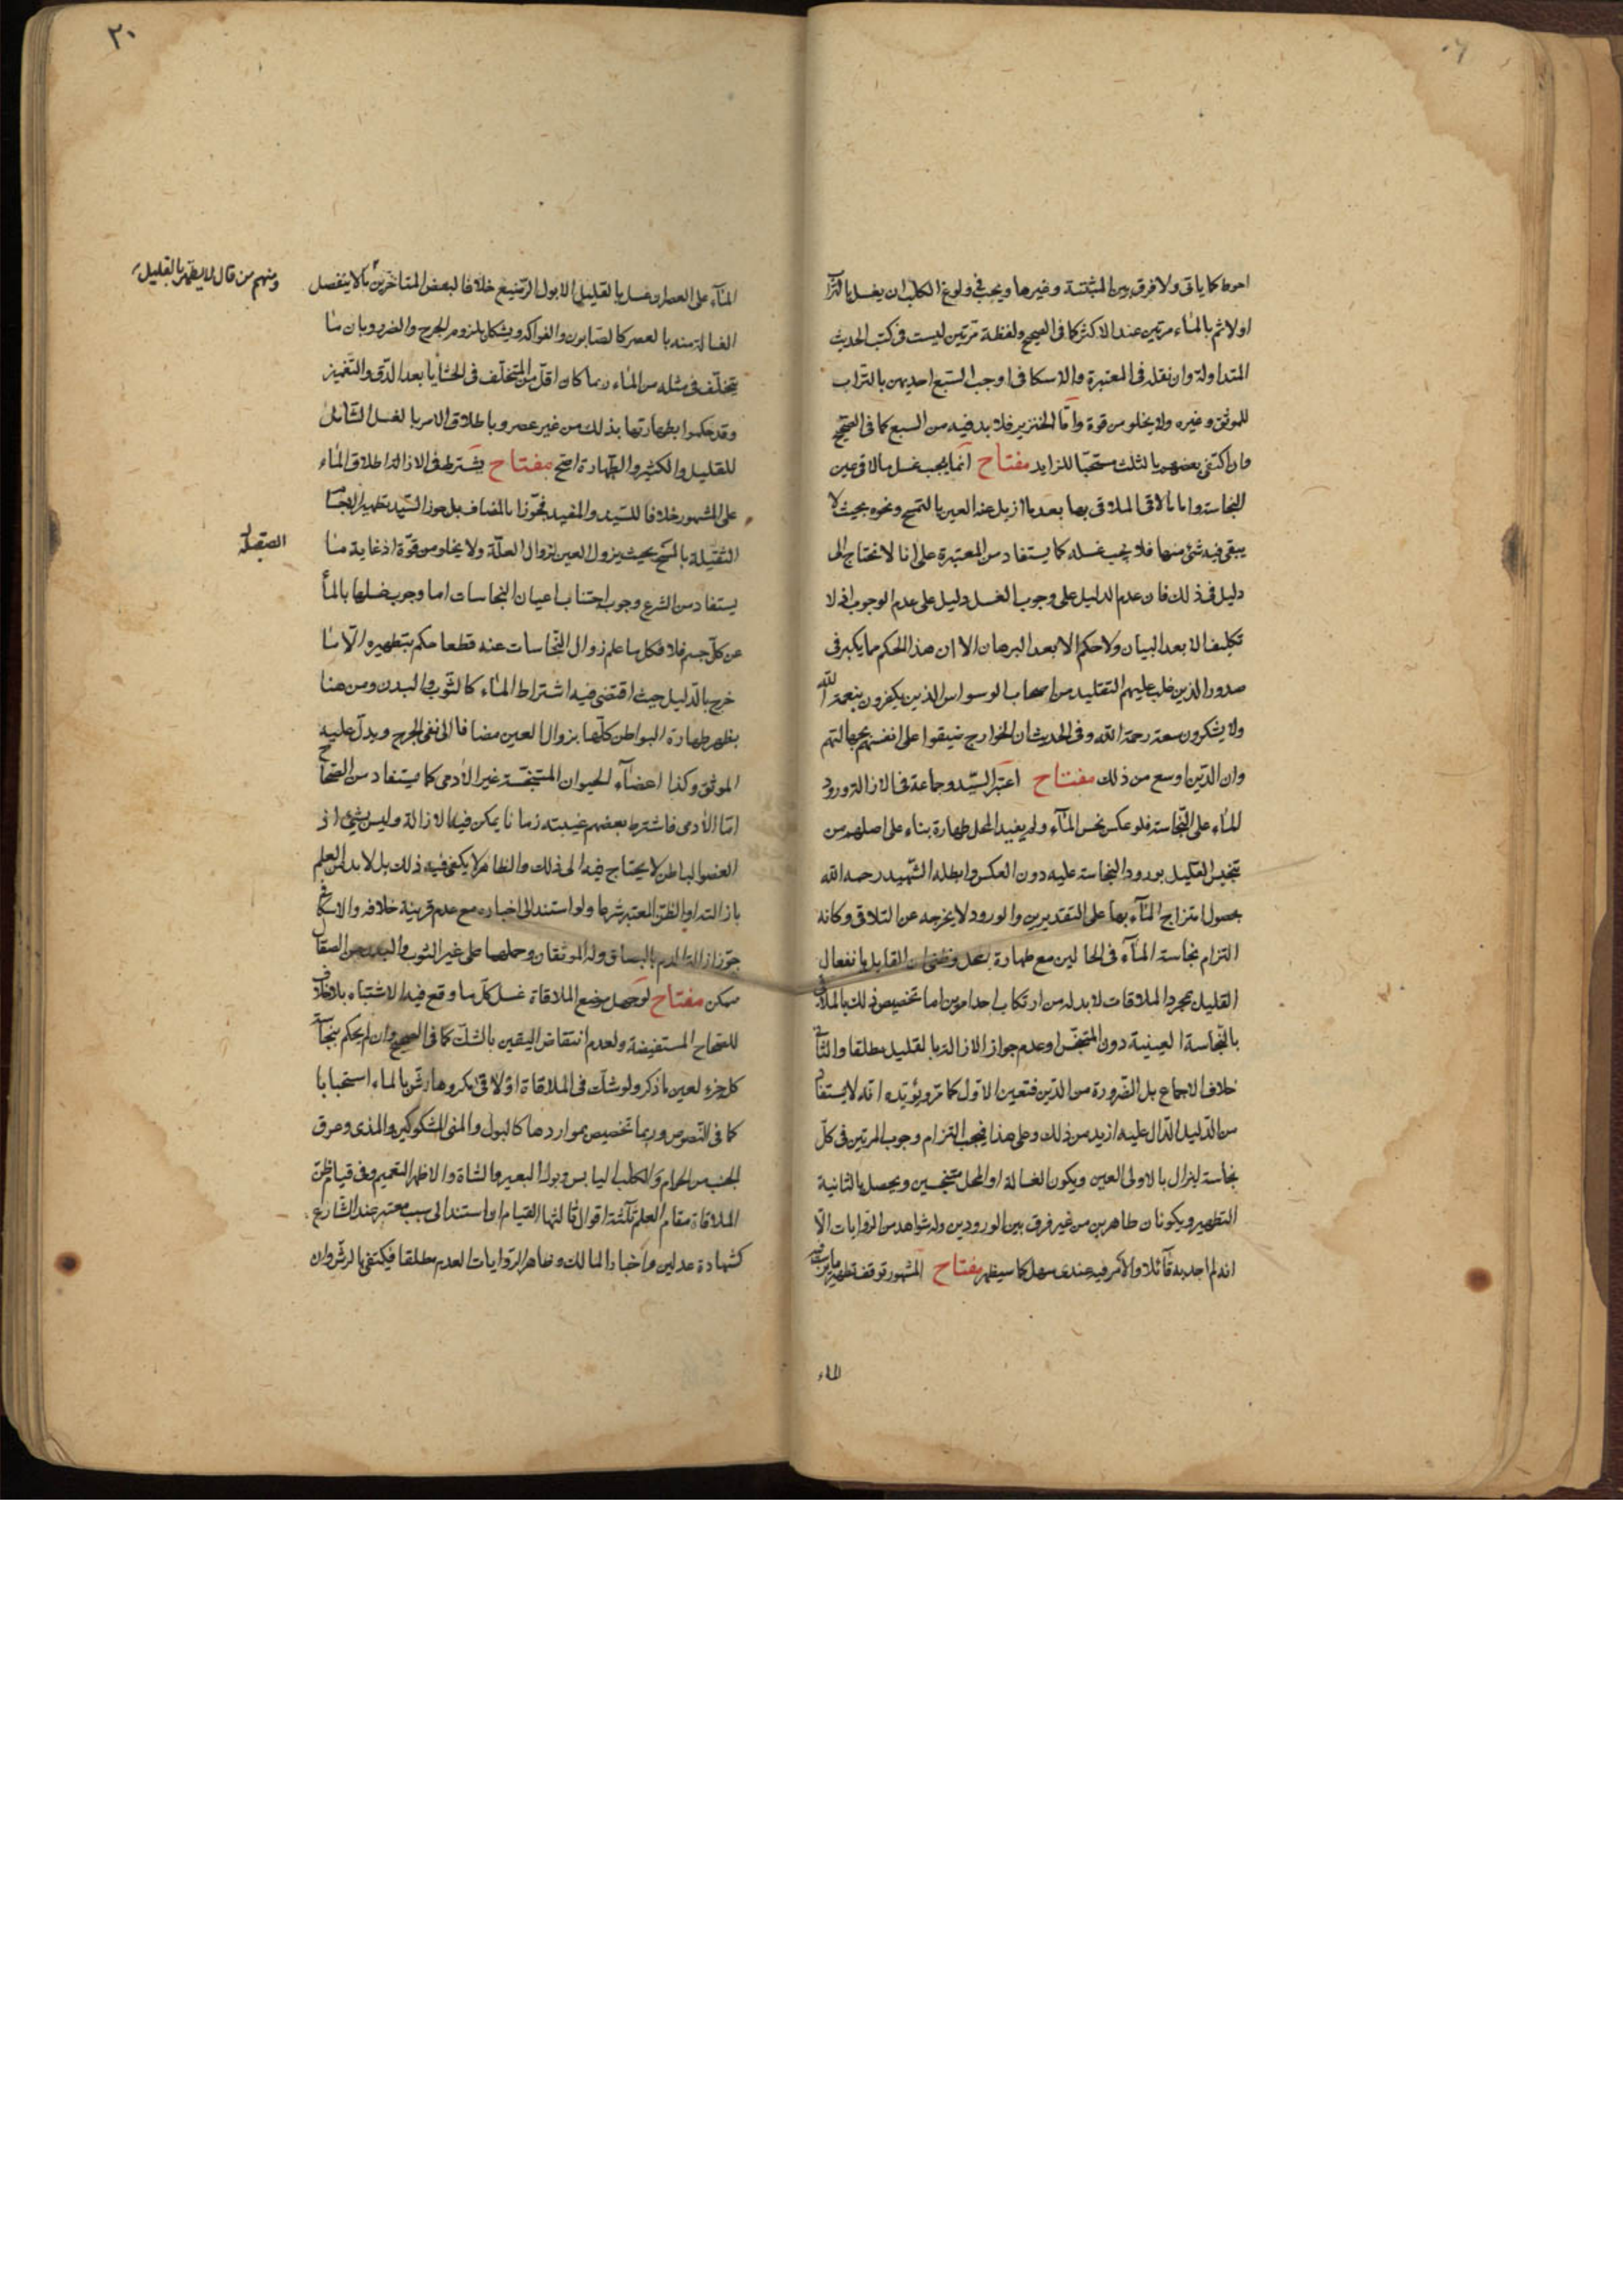 احوط كما ياتى ولا فرق بين المثبتة وغيرها ويجب فى ولوغ الكلب ان يغسل بالتراب
اولا ثم بالماء مرتين عند الاكثر كما فى الصحيح ولفظة مرتين ليست فى كتب الحديث
المتداولة وان نقله فى المعتبرة والاسكافى اوجب السبع احديهن بالتراب
للموثق وغيره ولا يخلو من قوة وامّا الخنزير فلا بد فيه من السبع كما فى الصحيح
وان اكتفى بعضهم بالثلث مستحبّا للزايد مفتاح انما يجب غسل ما لاقى عين
النجاسة واما ما لاقى الملاقى بها بعد ما ازيل عنه العين بالتمسح ونحوه بحيث لا
يبقى فيه شئ منها فلا يجب غسله كما يستفاد من المعتبرة على انا لا نحتاج الى
دليل فى ذلك فان عدم الدليل على وجوب الغسل دليل على عدم الوجوب اذ لا
تكليف الا بعد البيان ولا حكم الا بعد البرهان الا ان هذا الحكم مما يكبر فى
صدور الذين غلب عليهم التقليد من اصحاب الوسواس الذين يكفرون بنعمة الله
ولا يشكرون سعة رحمة الله وفى الحديث ان الخوارج ضيقوا على انفسهم بجهالتهم
وان الدين اوسع من ذلك مفتاح اعتبر السيّد وجماعة فى الازالة ورود
الماء على النّجاسة فلو عكس نجس المآء ولم يفيد المحل طهارة بناء على اصلهم من
تنجيس القليل بورود النجاسة عليه دون العكس وابطله الشّهيد رحمه الله
بحصول امتزاج المآء بها على التقديرين والورود لا يخرجه عن التلاقى وكانه
التزام نجاسة المآء فى الحالين مع طهارة المحل وظنى ان القايل بانفعال
القليل بمجرد الملاقات لا بد له من ارتكاب احد امرين اما تخصيص ذلك بالملاقى
بالنّجاسة العينية دون المتنجّس او عدم جواز الازالة بالقليل مطلقا والثانى
خلاف الاجماع بل الضّرورة من الدّين فتعين الاوّل كما مرّ ويؤيّده انّه لا يستفاد
من الدّليل الدّال عليه ازيد من ذلك وعلى هذا فيجب التزام وجوب المرتين فى كلّ
نجاسة ليزال بالاولى العين ويكون الغسالة او المحل متنجسين ويحصل بالثانية
التطهير ويكونان طاهرين من غير فرق بين الورودين وله شواهد من الرّوايات الّا
انه لم اجد به قآئلا والامر فيه عندى سهل كما سيظهر مفتاح المشهور توقف تطهير ما يرسب فيه
الماء
٢٠
المآء على العصر ان غسل بالقليل الا بول الرّضيع خلافا لبعض المتاخرين كالا ينفصل
ومنهم من قال لا يطهر بالقليل
الغسالة منه بالعصر كالصّابون والفواكه ويشكل بلزوم الحرج والضرر وبان ما
يتخلّف فى مثله من الماء ربما كان اقلّ من المتخلّف فى الحشايا بعد الدّق والتّغميز
وقد حكموا بطهارتها بذلك من غير عصر وباطلاق الامر بالغسل الشّامل
للقليل والكثير والطّهارة اصح مفتاح يشترط فى الازالة اطلاق الماء
على المشهور خلافا للسّيد والمفيد فجوّزا بالمضاف بل جوز السّيد تطهير الاجسام
الثقيلة بالمسح بحيث يزول العين لزوال العلّة ولا يخلو من قوّة اذ غاية ما
الصقيلة
يستفاد من الشرع وجوب اجتناب اعيان النجاسات اما وجوب غسلها بالماء
عن كلّ جسم فلا فكل ما علم زوال النّجاسات عنه قطعا حكم بتطهيره الّا ما
خرج بالدّليل حيث اقتضى فيه اشتراط الماء كالثّوب والبدن ومن هنا
يظهر طهارة البواطن كلّها بزوال العين مضافا الى نفى الحرج ويدلّ عليه
الموثق وكذا اعضآء الحيوان المتنجّسة غير الآدمى كما يستفاد من الصّحاح
امّا الآدمى فاشترط بعضهم غيبته زمانا يمكن فيه الازالة وليس بشئ اذ
العضو الباطن لا يحتاج فيه الى ذلك والظاهر لا يكفى فيه ذلك بل لا بد من العلم
بازالته او الظن المعتبر شرعا ولو استند الى اخباره مع عدم قرينة خلافه والاسكافى
جوّز ازالة الدم بالبصاق وله الموثقان وحملها على غير الثوب والبدن من الصقال
ممكن مفتاح لو جهل موضع الملاقاة غسل كلّ ما وقع فيه الاشتباه بلا خلاف
للصّحاح المستفيضة ولعدم انتقاض اليقين بالشكّ كما فى الصحيح وان لم يحكم بنجاسة
كل جزء لعين ما ذكر ولو شكّ فى الملاقاة او لاقى مكروها رشّ بالماء استحبابا
كما فى النّصوص وربما تخصيص بمواردها كالبول والمنى المشكوكين والمذى وعرق
الجنب من الحرام والكلب اليابس وبول البعير والشاة والاظهر التعميم وفى قيام ظنّ
الملاقاة مقام العلم ثلثة اقوال ثالثها القيام ان استند الى سبب معتبر عند الشّارع
كشهادة عدلين واخبار المالك وظاهر الرّوايات العدم مطلقا فيكتفى بالرشّ وان